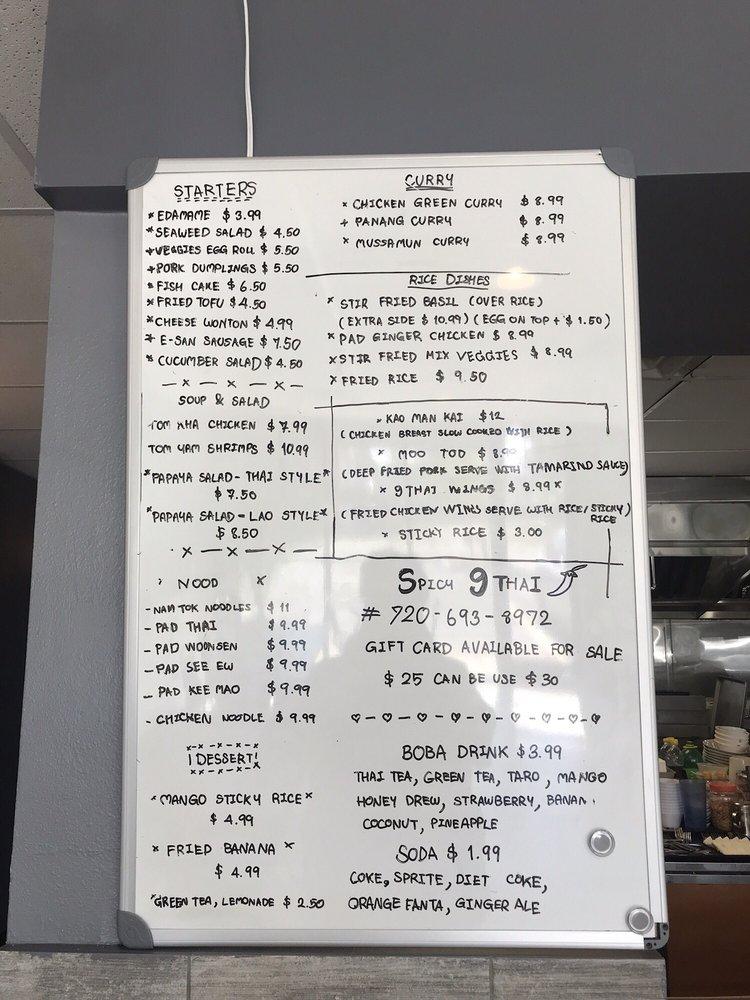 STARTERS
* EDAMAME $ 3.99
* SEAWEED SALAD $ 4.50
* VEGGIES EGG ROLL $ 5.50
* PORK DUMPLINGS $ 5.50
* FISH CAKE $ 6.50
* FRIED TOFU $ 4.50
* CHEESE WONTON $ 4.99
* E-SAN SAUSAGE $ 7.50
* CUCUMBER SALAD $ 4.50
— x — x — x —
SOUP & SALAD
TOM KHA CHICKEN $ 7.99
TOM YAM SHRIMPS $ 10.99
*PAPAYA SALAD - THAI STYLE*
$ 7.50
*PAPAYA SALAD - LAO STYLE*
$ 8.50
x — x — x —
NOOD x
- NAM TOK NOODLES $ 11
- PAD THAI $ 9.99
- PAD WOONSEN $ 9.99
- PAD SEE EW $ 9.99
- PAD KEE MAO $ 9.99
- CHICKEN NOODLE $ 9.99
DESSERT!
*MANGO STICKY RICE*
$ 4.99
* FRIED BANANA *
$ 4.99
*GREEN TEA, LEMONADE $ 2.50
CURRY
* CHICKEN GREEN CURRY $ 8.99
+ PANANG CURRY $ 8.99
* MUSSAMUN CURRY $ 8.99
RICE DISHES
* STIR FRIED BASIL (OVER RICE)
(EXTRA SIDE $ 10.99) (EGG ON TOP + $ 1.50)
* PAD GINGER CHICKEN $ 8.99
* STIR FRIED MIX VEGGIES $ 8.99
* FRIED RICE $ 9.50
* KAO MAN KAI $12
(CHICKEN BREAST SLOW COOKED WITH RICE)
* MOO TOD
(DEEP FRIED PORK SERVE WITH TAMARIND SAUCE)
* 9THAI WINGS $ 8.99 *
(FRIED CHICKEN WINGS SERVE WITH RICE/STICKY)
RICE
* STICKY RICE $ 3.00
SPICY 9 THAI
# 720-693-8972
GIFT CARD AVAILABLE FOR SALE
$ 25 CAN BE USE $ 30
♡ - ♡ - ♡ - ♡ - ♡ - ♡ - ♡ - ♡ - ♡
BOBA DRINK $3.99
THAI TEA, GREEN TEA, TARO, MANGO
HONEY DREW, STRAWBERRY,
COCONUT, PINEAPPLE
SODA $ 1.99
COKE, SPRITE, DIET COKE,
ORANGE FANTA, GINGER ALE